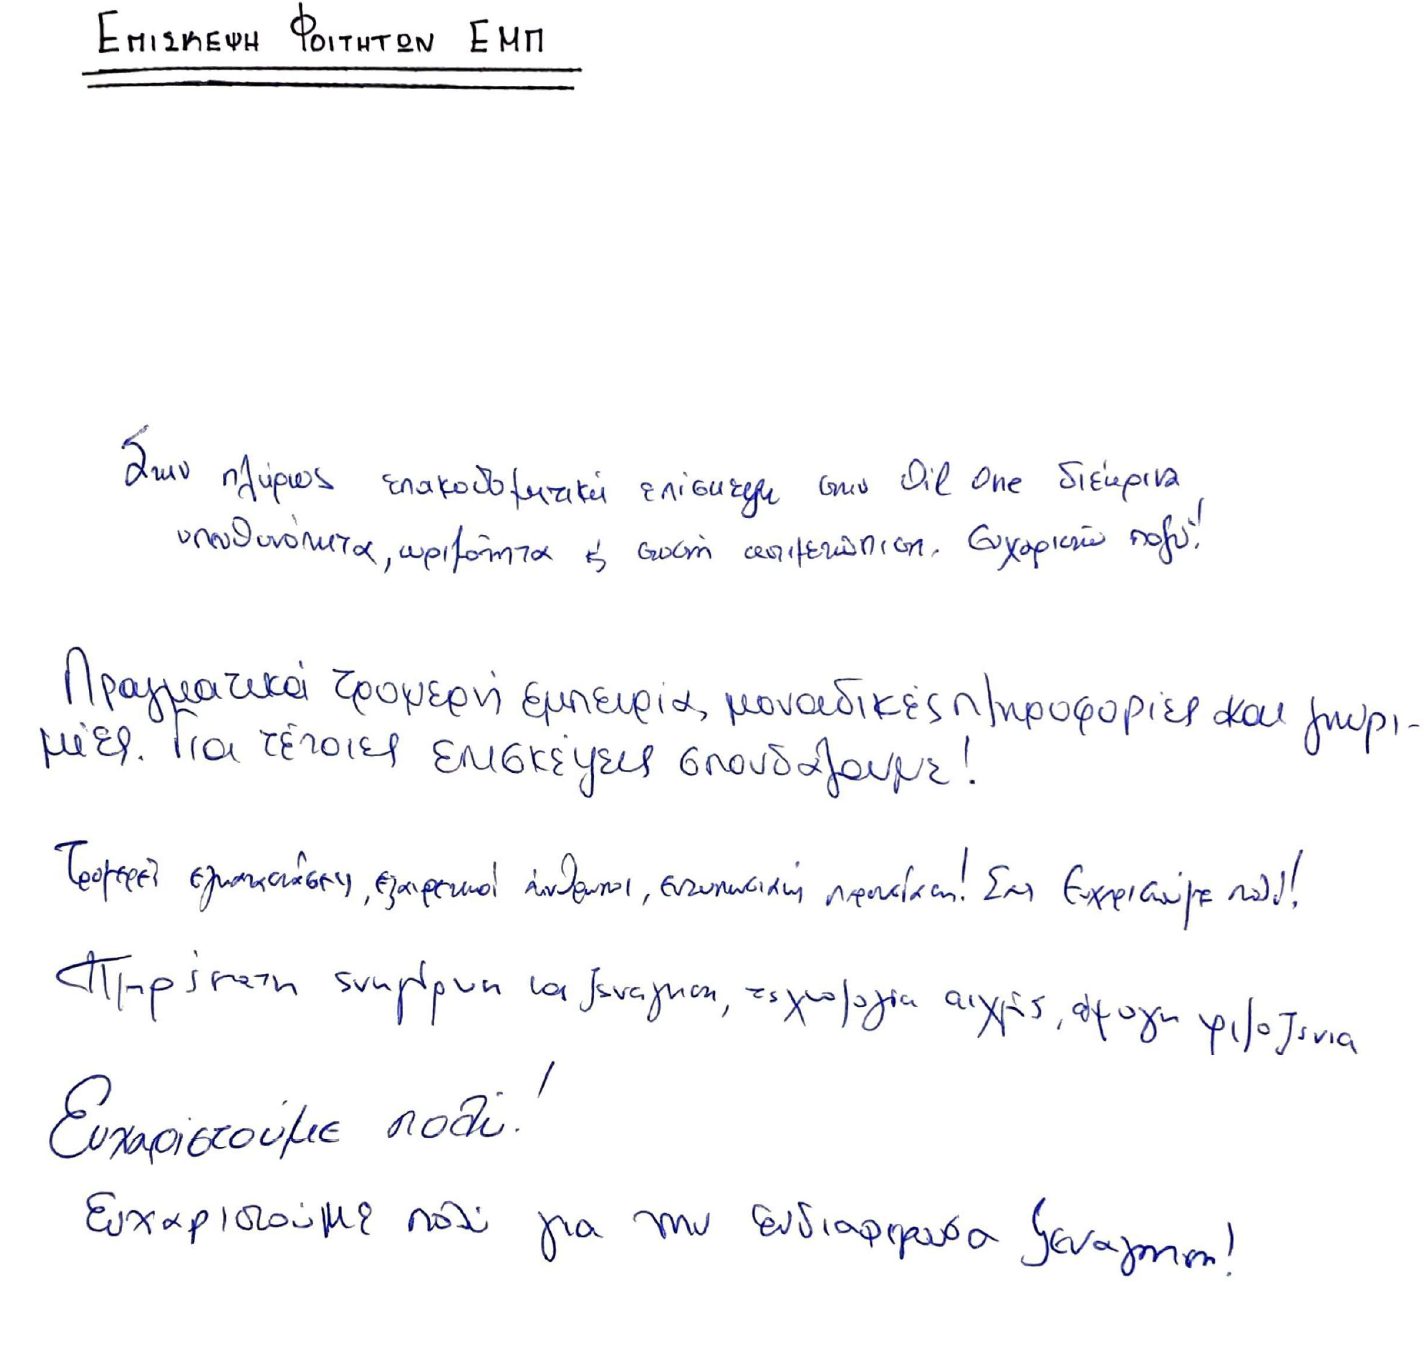 Επισκεψη Φοιτητων ΕΜΠ
Στην πλήρως εποικοδομητική επίσκεψη στην Oil One διέκρινα
υπευθυνότητα, ωριμότητα & σωστή αντιμετώπιση. Ευχαριστώ πολύ!
Πραγματικά τρομερή εμπειρία, μοναδικές πληροφορίες και γνωρι-
μιές. Για τέτοιες επισκέψεις σπουδάζουμε!
Τρομερές εγκαταστάσεις, εξαιρετικοί άνθρωποι, εντυπωσιακή παρουσίαση! Σας Ευχαριστούμε πολύ!
Πληρέστατη ενημέρωση και ξενάγηση, τεχνολογία αιχμής, άψογη φιλοξενια
Ευχαριστούμε πολύ!
Ευχαριστούμε πολύ για την ενδιαφέρουσα ξεναγηση!